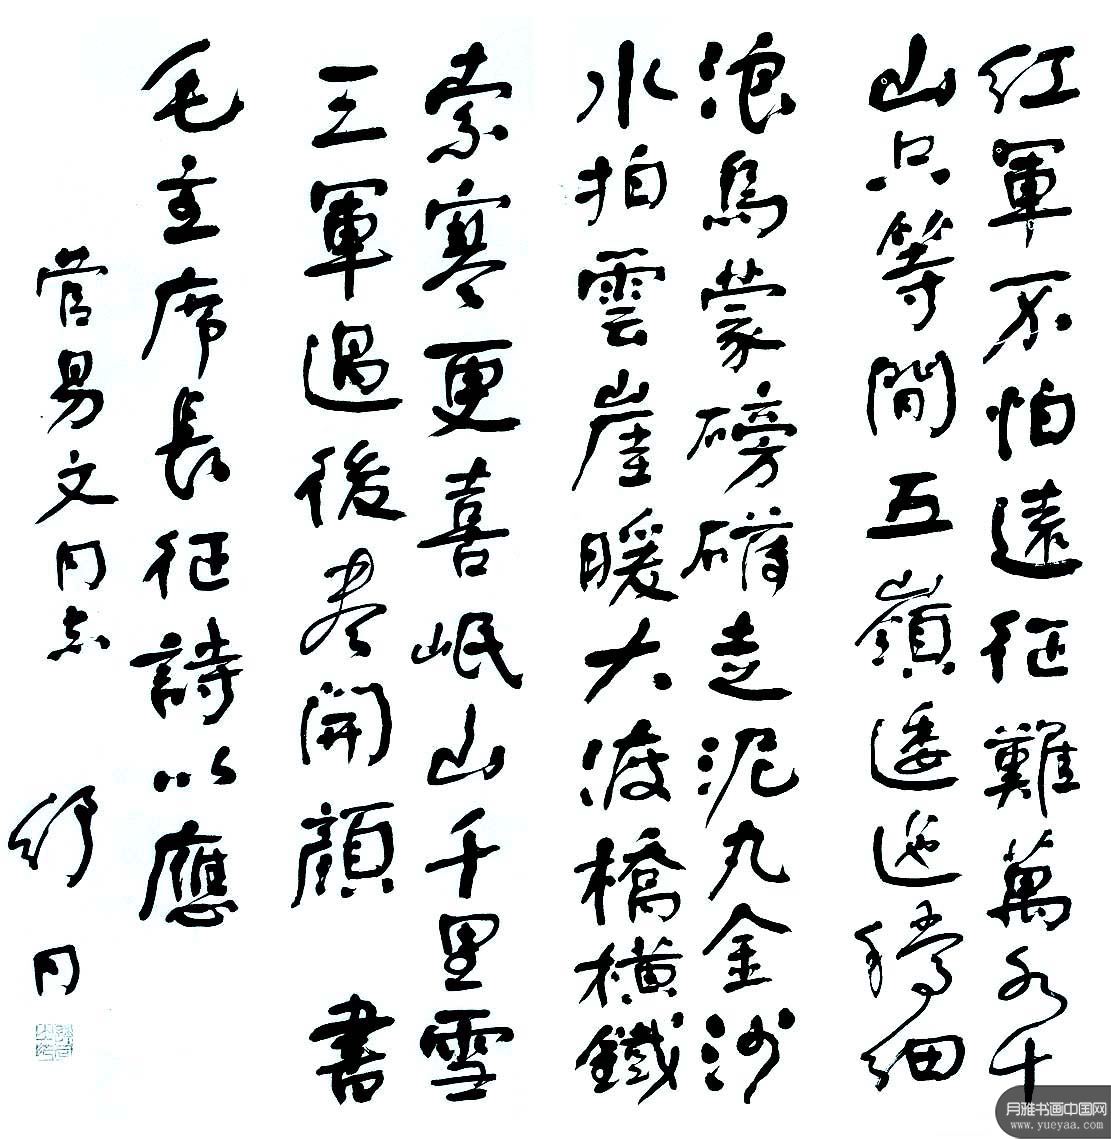 紅軍不怕遠征難萬水千
山只等閒五嶺逶迤騰細
浪烏蒙磅礴走泥丸金沙
水拍雲崖暖大渡橋橫鐵
索寒更喜岷山千里雪
三軍過後盡開顏 書
毛主席長征詩以應
管易文同志 舒同
月雅书画中国网
www.yueyaa.com